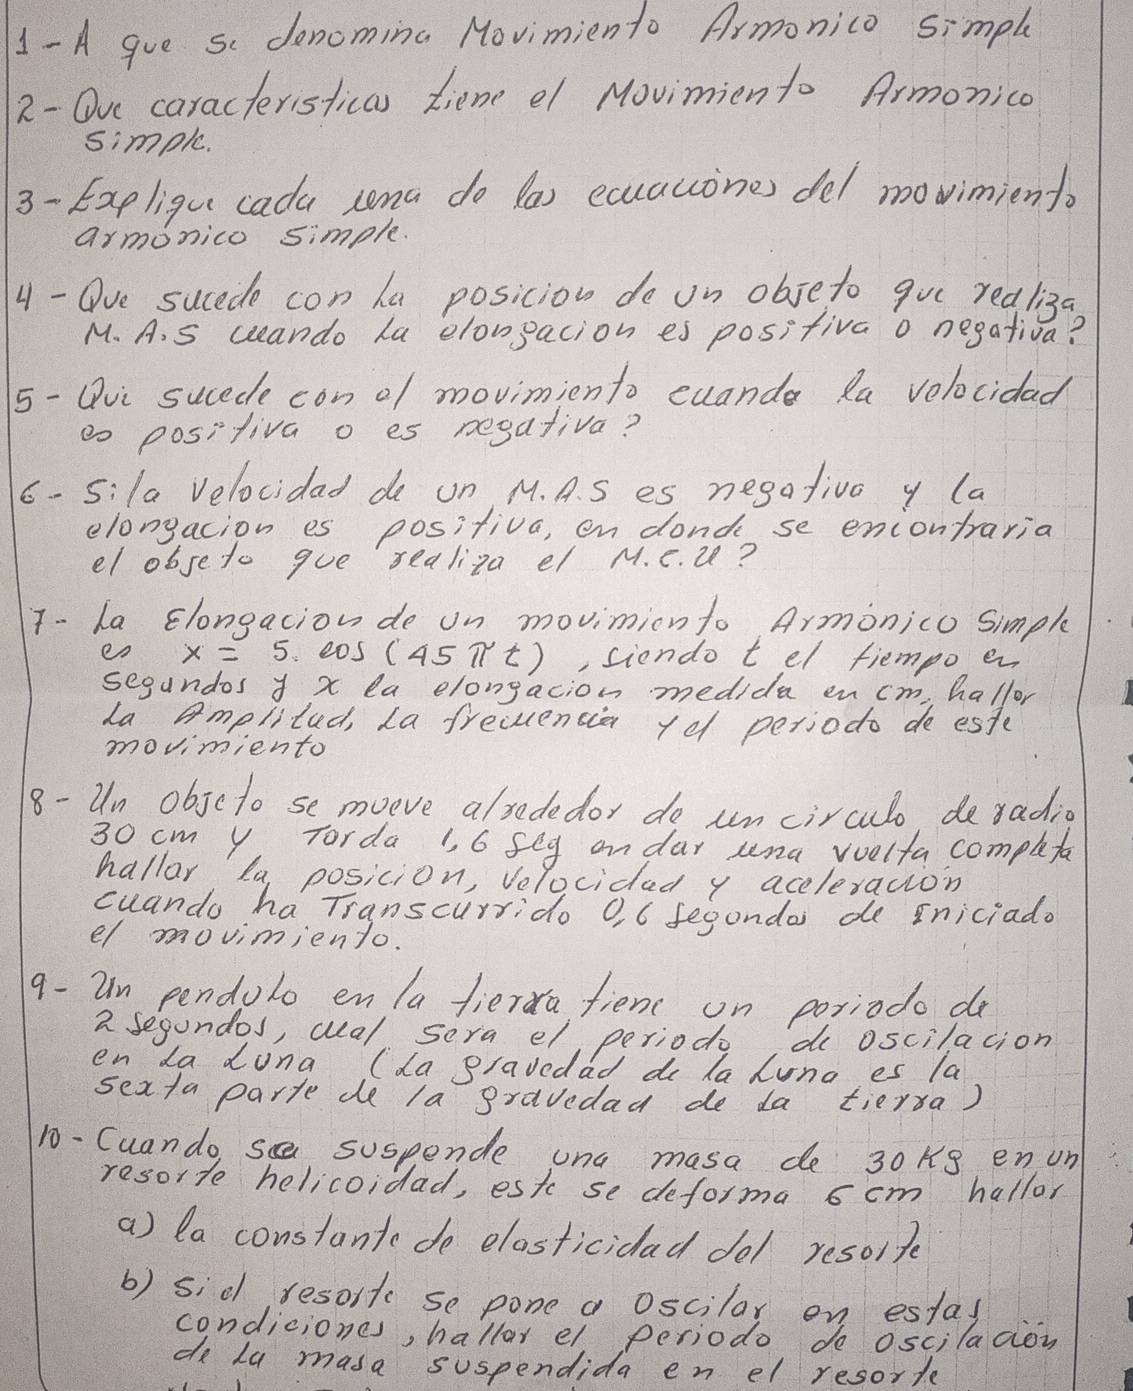 1 - A que se denomina Movimiento Armonico simple
2 - Que caracteristicas tiene el Movimiento Armonico
simple.
3 - Explique cada una de las ecuaciones del movimiento
armónico simple.
4 - Que sucede con la posicion de un objeto que realiza
M.A.S cuando la elongacion es positiva o negativa?
5 - Que sucede con el movimiento cuando la velocidad
es positiva o es negativa?
6 - Si la velocidad de un M.A.S es negativa y la
elongacion es positiva, en donde se encontraria
el objeto que realiza el M.C.U?
7 - La Elongacion de un movimiento Armónico Simple
es x = 5. cos (45 π t), siendo t el tiempo en
segundos y x la elongacion medida en cm, hallar
la Amplitud, la frecuencia y el periodo de este
movimiento
8 - Un objeto se mueve alrededor de un circulo de radio
30 cm y Tarda 1,6 seg en dar una vuelta completa
hallar la posicion, velocidad y aceleración
cuando ha Transcurrido 0,6 segundos de iniciado
el movimiento.
9 - Un pendulo en la tierra tiene un periodo de
2 segundos, cual sera el periodo de oscilacion
en la Luna (la gravedad de la Luna es la
sexta parte de la gravedad de la tierra)
10 - Cuando se suspende una masa de 30 Kg en un
resorte helicoidad, este se deforma 6 cm hallar
a) la constante de elasticidad del resorte
b) si el resorte se pone a oscilar en estas
condiciones, hallar el periodo de oscilación
de la masa suspendida en el resorte